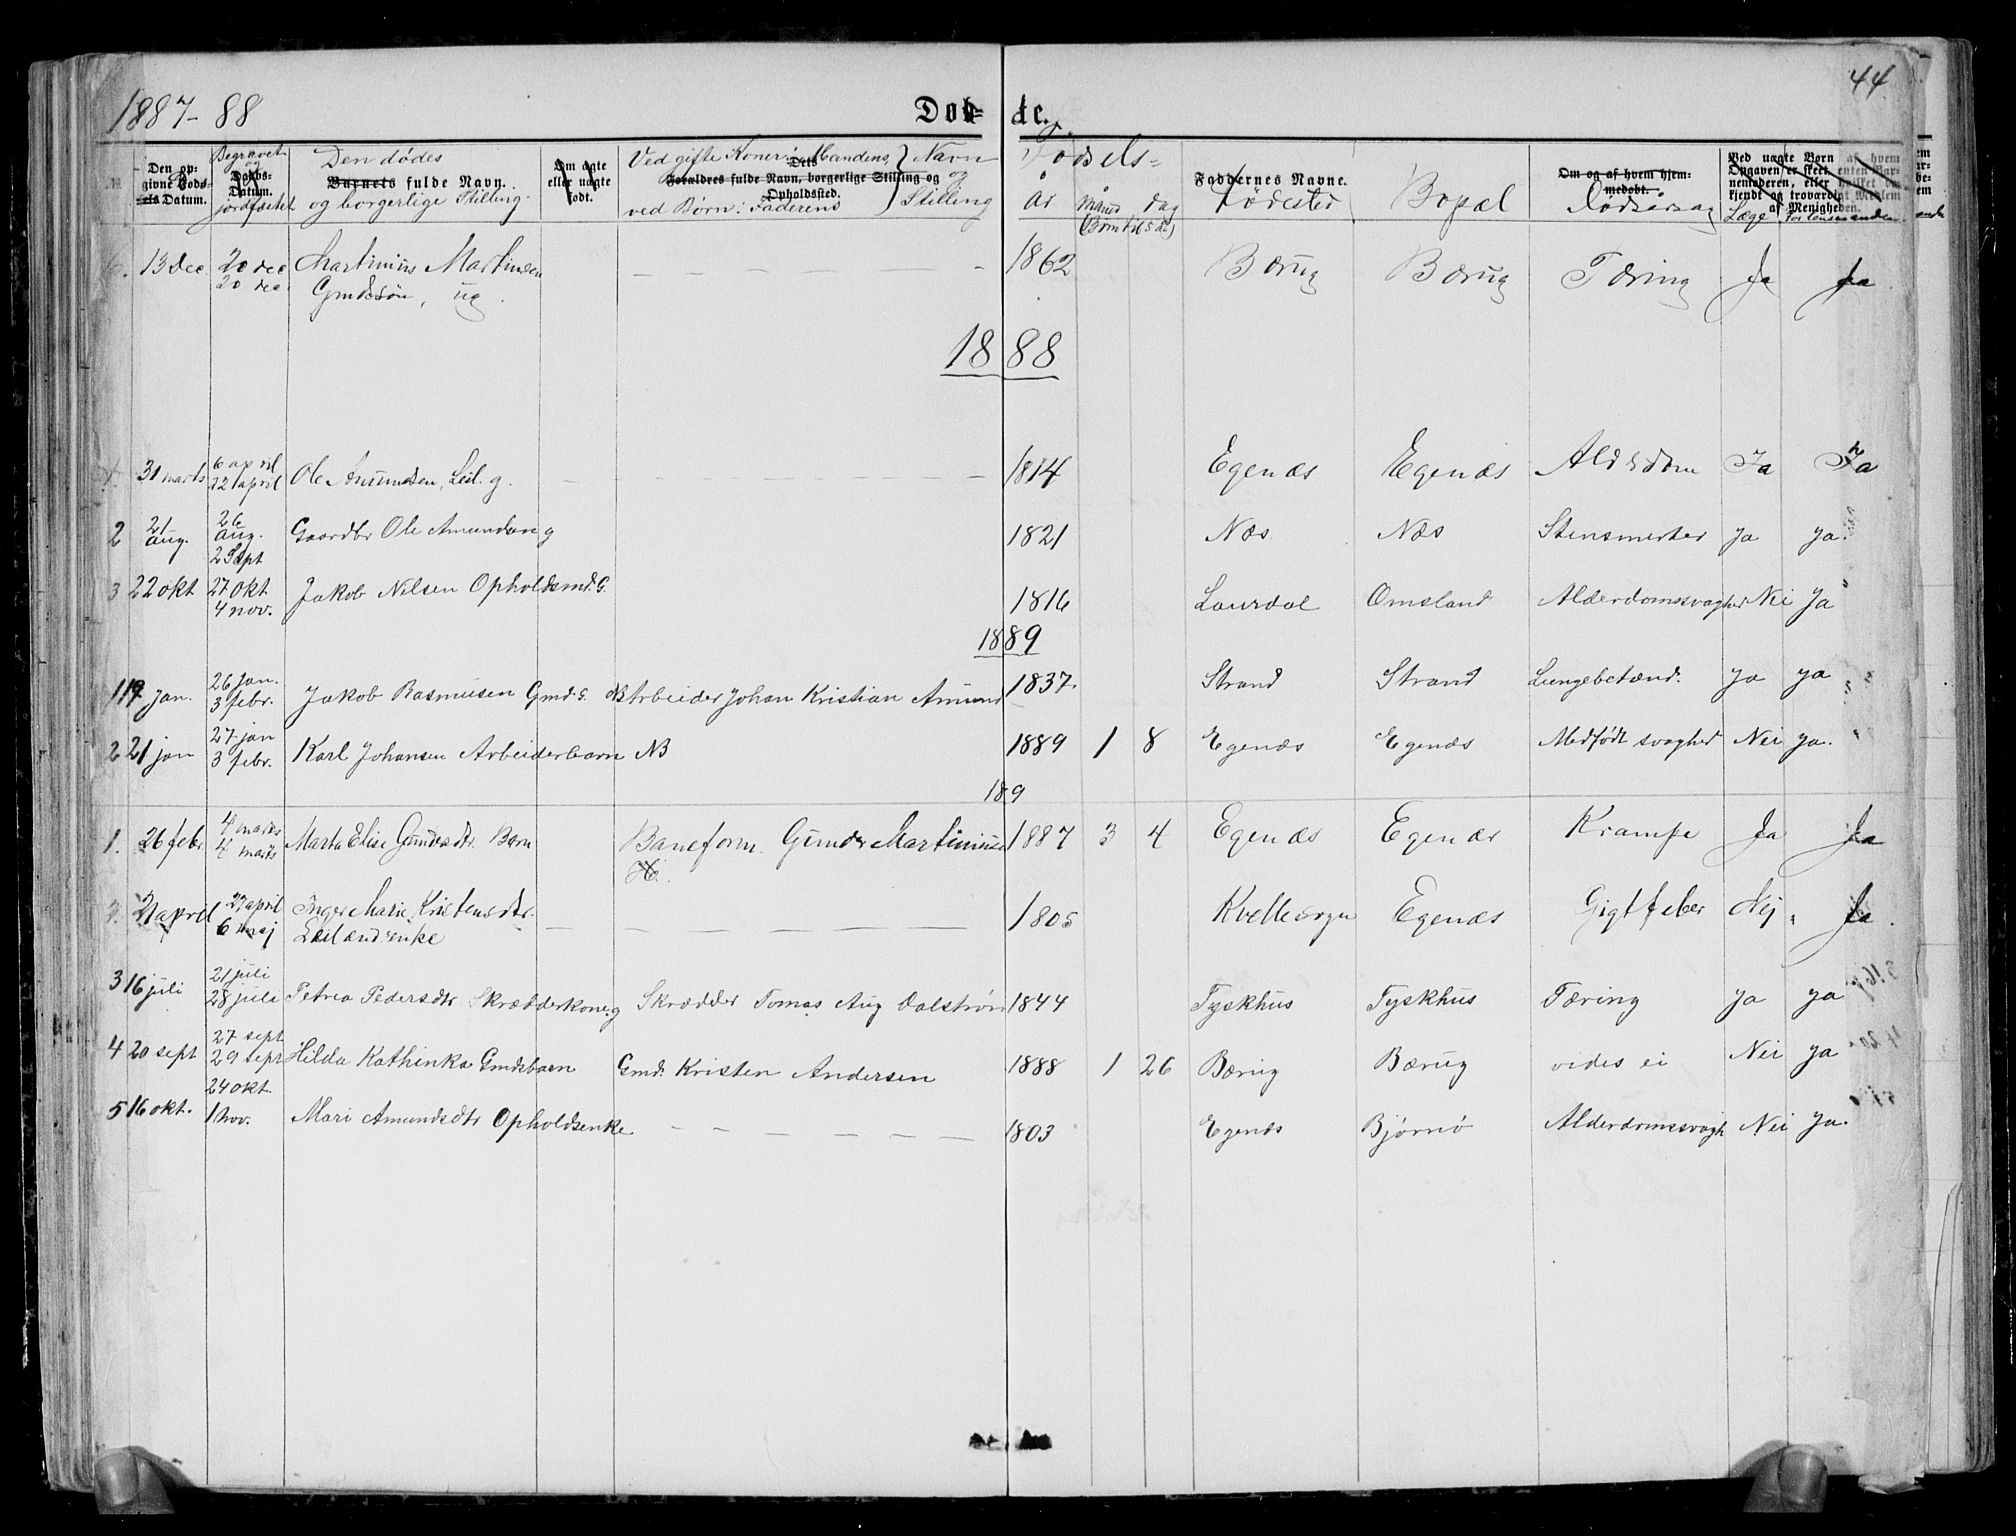 1887-88 Dö- de. 44
Den opgivne Döds- Datum. | Begravet og jordfæstet Datum. | Den dødes fulde Navn. og borgerlige Stilling. | Om ægte eller uægte født. | Ved gifte Koner: Mandens, ved Børn: Faderens } Navn og Stilling | Fødsels- År måned dag (Børn til 5 år) | Fødested | Bopæl | Dødsårsag | Læge
Barnets
Forældres fulde Navn, borgerlige Stilling og Opholdssted.
Faddernes Navne.
Om og af hvem hjemmedøbt.
Ved uægte Børn
6. 13 Dec. 20 dec 20 dec. Martinius Martinsen Gmdssøn, ug. — 1862 Bærug Bærug Tæring Ja Ja
1888
1. 31 marts 6 april 22 april Ole Amundsen, Leil. g. — 1814 Egenæs Egenæs Alderdom Ja Ja
2 21 aug. 26 aug. 2 Sept Gaardbr Ole Amundsen g 1821 Næs Næs Stensmerter ja ja.
3 22 okt 27 okt 4 nov. Jakob Nilsen Opholdsmd. G. 1816 Laurdal Omsland Alderdomssvaghed Nei Ja
1889
1 19 jan. 26 jan. 3 febr. Jakob Rasmusen Gmd. G. NB Arbeider Johan Kristian Amund 1837 Strand Strand Lungebetænd. ja ja
2 21 jan 27 jan 3 febr. Karl Johansen Arbeiderbarn NB 1889 1 8 Egenæs Egenæs Medfødt svaghed Nei ja.
189
1. 26 febr 4 marts 4 marts Marta Elise Gundersdtr. Barn Baneform. Gunder Martinius 1887 3 4 Egenæs Egenæs Krampe Ja Ja
2. 21 april 27 april 6 maj Inger Marie Kristensdtr. Leilændsenke — 1805 Kvellesogn Egenæs Gigtfeber Nej, Ja.
3 16 juli 21 juli 28 juli Petrea Pedersdtr Skrædderkone g Skrædder Tomas Aug Dalstrøm 1844 Tyskhus Tyskhus Tæring ja ja
4 20 sept 27 sept 29 sept Hilda Kathinka Gmdsbarn Gmd. Kristen Andersen 1888 1 26 Bærug Bærug vides ei Nei ja
5 16 okt. 24 okt. 1 nov. Mari Amundsdtr Opholdsenke — 1803 Egenæs Bjørnø Alderdomssvagh Nei ja.